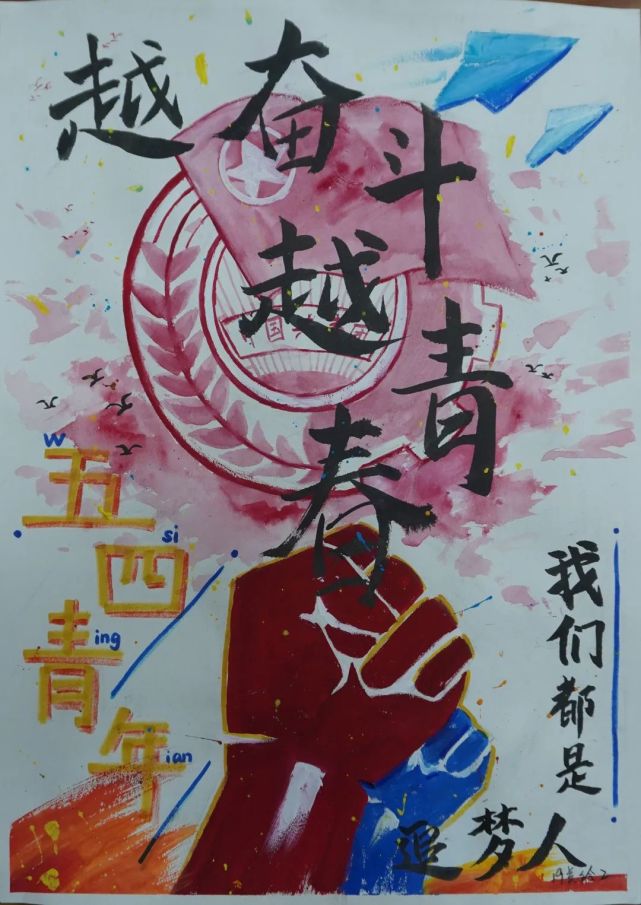 越奋斗
越青春
五四
青年
w
si
ing
ian
中国
团
我们都是
追梦人